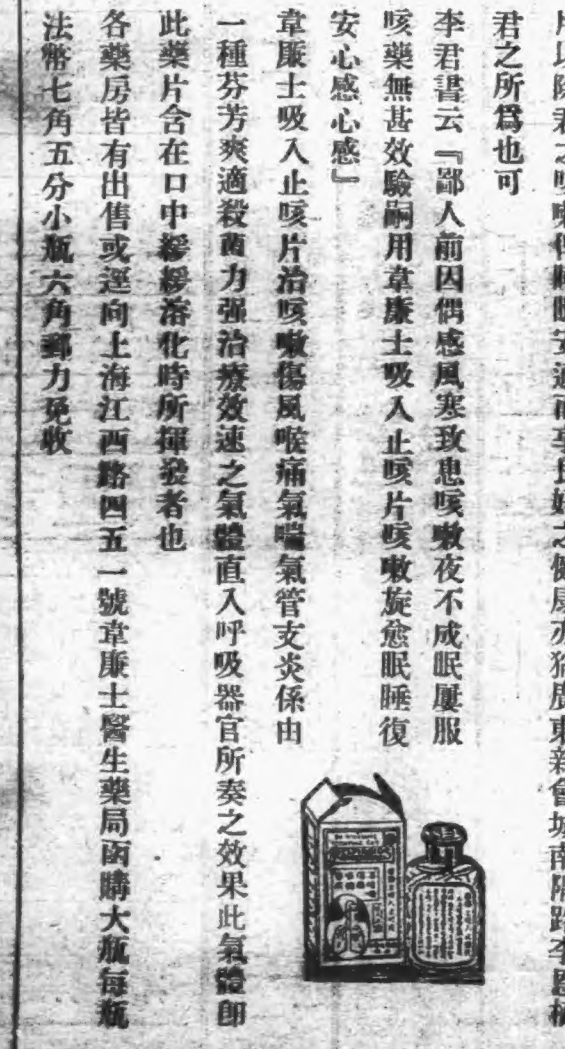 片以除君之咳嗽俾睡眠安適而享良好之健康亦猶廣東新會城南隅路李
君之所爲也可
李君書云『鄙人前因偶感風寒致患咳嗽夜不成眠屢服
咳藥無甚效驗嗣用韋廉士吸入止咳片咳嗽旋愈眠睡復
安心感心感』
韋廉士吸入止咳片治咳嗽傷風喉痛氣喘氣管支炎係由
一種芬芳爽適殺菌力强治療效速之氣體直入呼吸器官所奏之效果此氣體卽
此藥片含在口中緩緩溶化時所揮發者也
各藥房皆有出售或逕向上海江西路四五一號韋廉士醫生藥局函購大瓶每瓶
法幣七角五分小瓶六角郵力免收